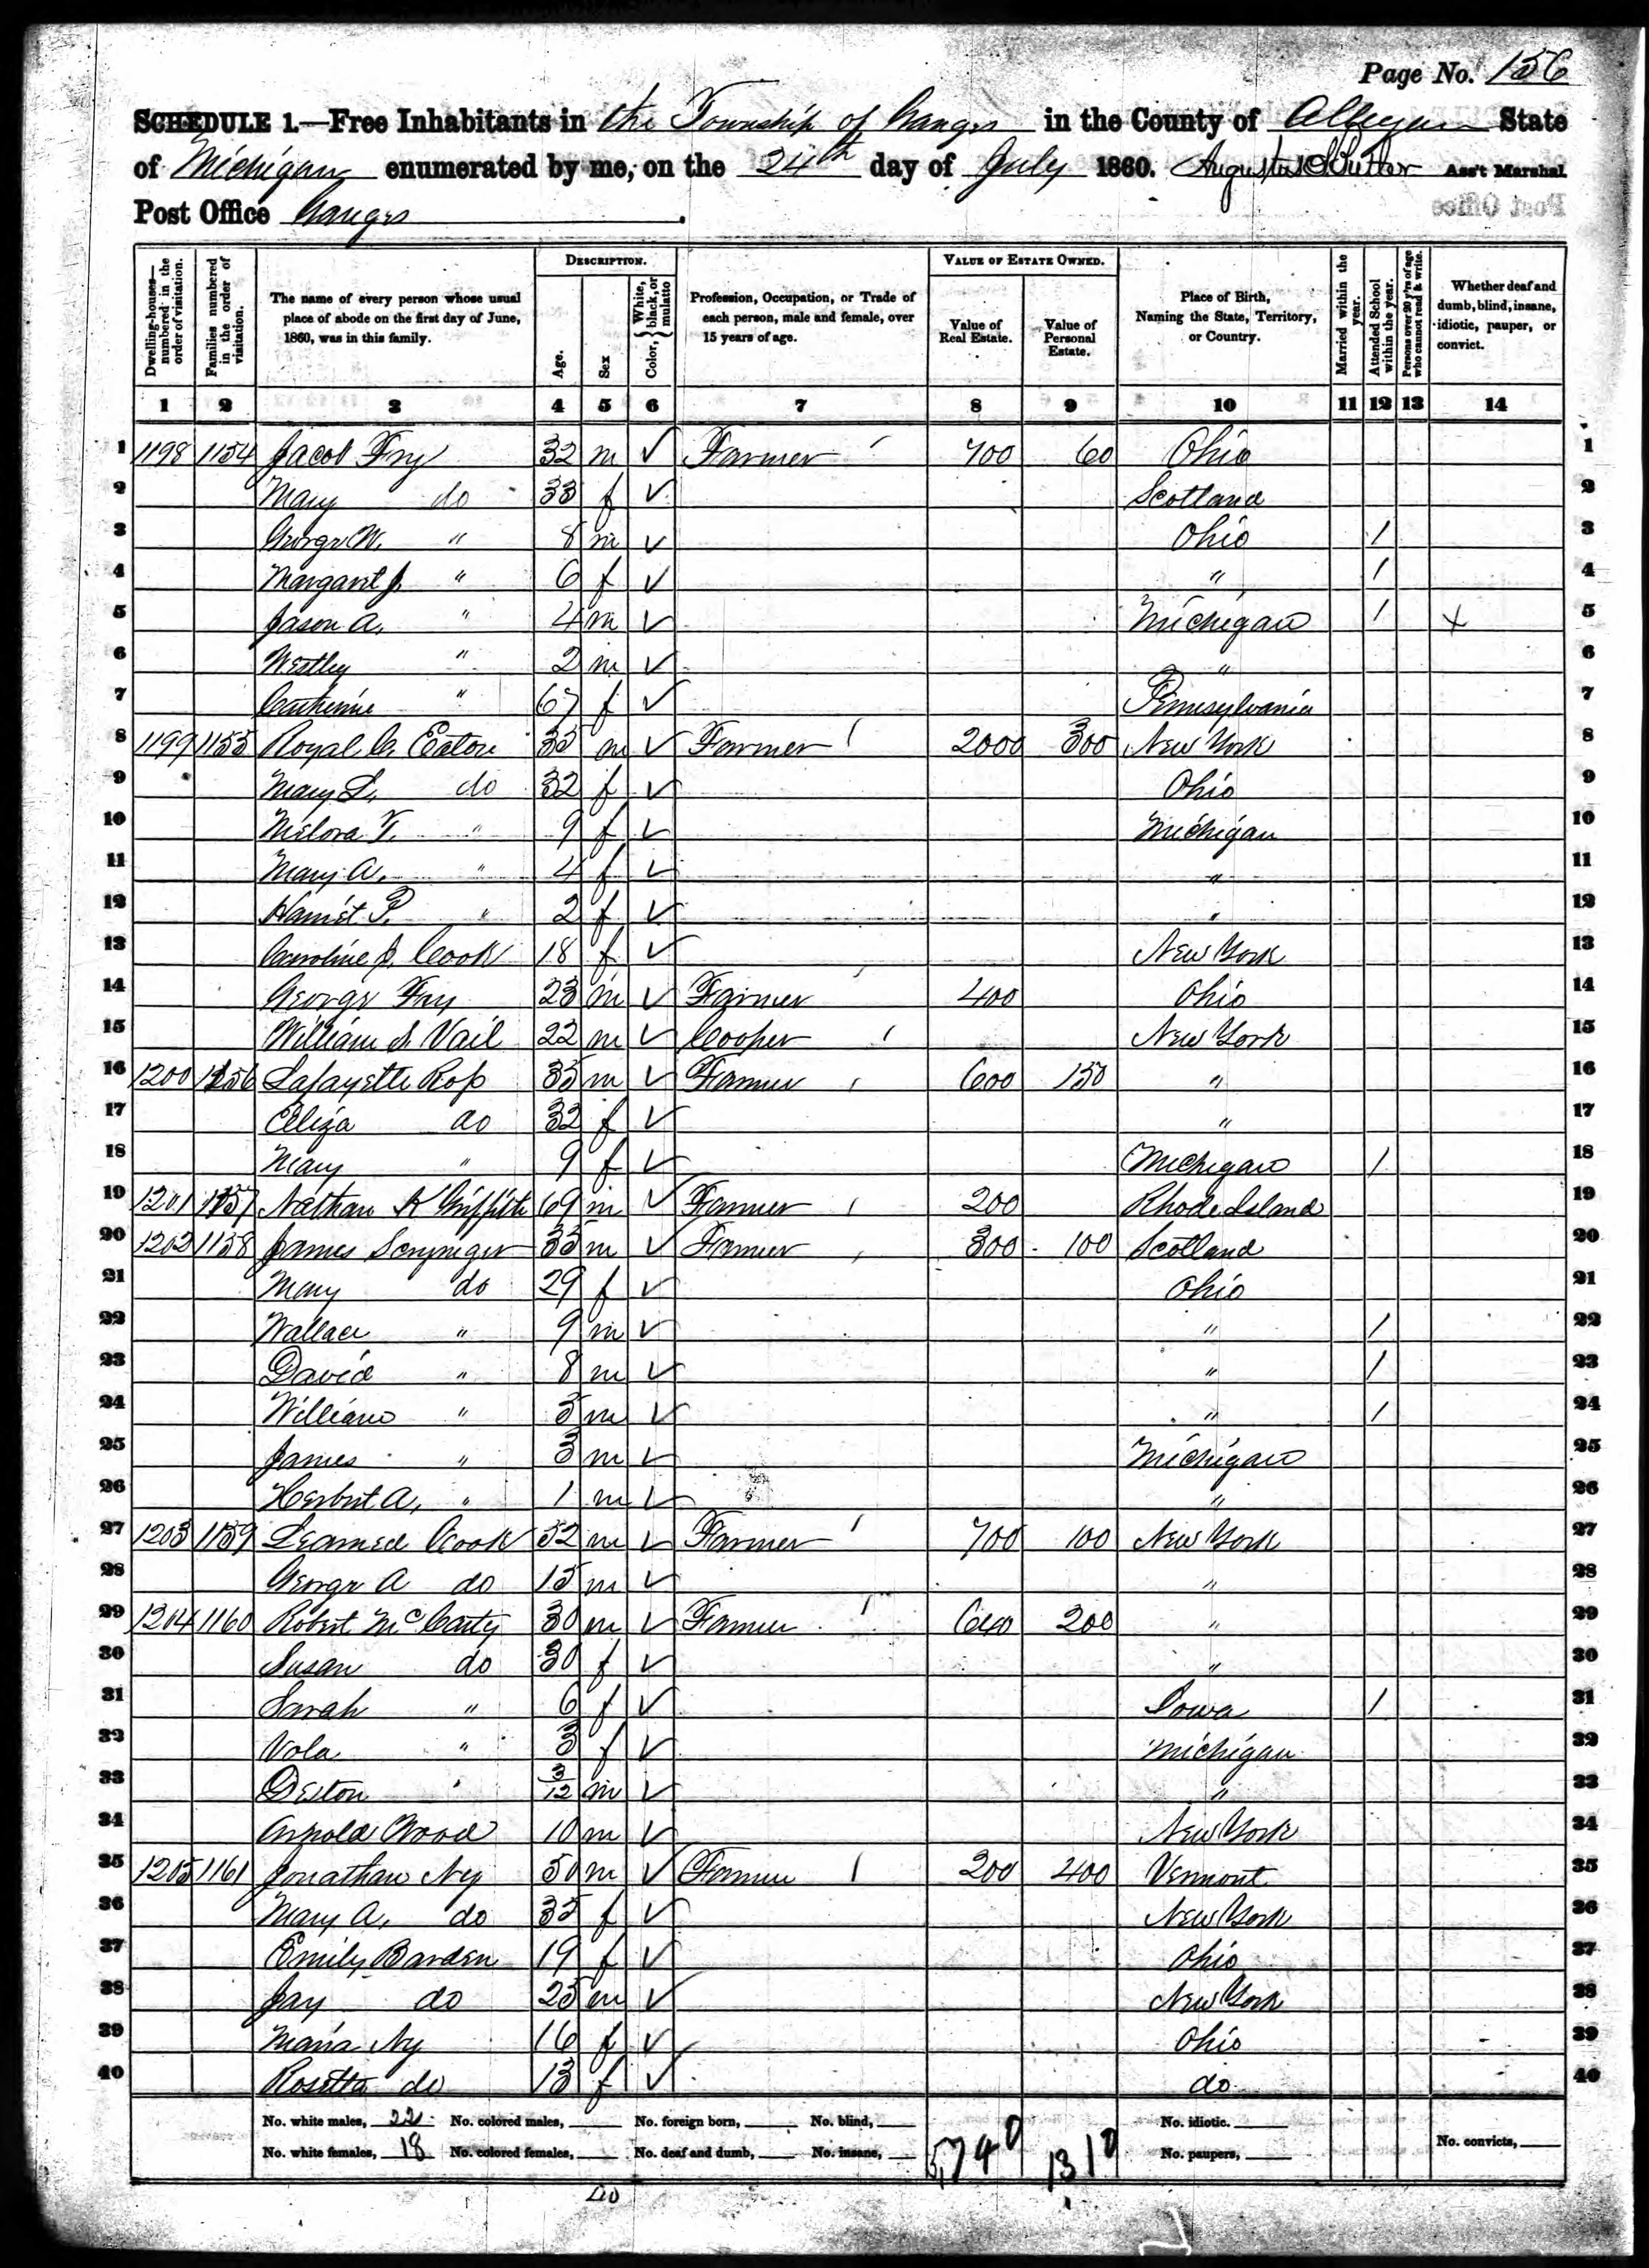 Page No. 156
SCHEDULE 1.—Free Inhabitants in the Township of Ganges in the County of Allegan State
of Michigan enumerated by me, on the 24th day of July 1860. Augustus Ass't Marshal
Post Office Ganges.
Dwelling-houses—numbered in the order of visitation. Families numbered in the order of visitation. The name of every person whose usual place of abode on the first day of June, 1860, was in this family. DESCRIPTION. Age. Sex Color, {White, black, or mulatto Profession, Occupation, or Trade of each person, male and female, over 15 years of age. VALUE OF ESTATE OWNED. Value of Real Estate. Value of Personal Estate. Place of Birth, Naming the State, Territory, or Country. Married within the year. Attended School within the year. Persons over 20 y'rs of age who cannot read & write. Whether deaf and dumb, blind, insane, idiotic, pauper, or convict.
1 2 3 4 5 6 7 8 9 10 11 12 13 14
1 1198 1154 Jacob Fry 32 m ✓ Farmer 700 60 Ohio 1
2 Mary do 33 f ✓ Scotland 2
3 George W. " 8 m ✓ Ohio / 3
4 Margaret J. " 6 f ✓ " / 4
5 Jason A. " 4 m ✓ Michigan / x 5
6 Westley " 2 m ✓ " 6
7 Catherine " 67 f ✓ Pennsylvania 7
8 1199 1155 Royal C. Eaton 35 m ✓ Farmer 2000 300 New York 8
9 Mary L. do 32 f ✓ Ohio 9
10 Melora T. " 9 f ✓ Michigan 10
11 Mary A. " 4 f ✓ " 11
12 Harriet P. " 2 f ✓ " 12
13 Caroline J. Cook 18 f ✓ New York 13
14 George Fry 23 m ✓ Farmer 400 Ohio 14
15 William S. Vail 22 m ✓ Cooper New York 15
16 1200 1156 Lafayette Ross 35 m ✓ Farmer 600 150 " 16
17 Eliza do 32 f ✓ " 17
18 Mary " 9 f ✓ Michigan / 18
19 1201 1157 Nathan K Griffith 69 m ✓ Farmer 200 Rhode Island 19
20 1202 1158 James Scrymger 35 m ✓ Farmer 300 100 Scotland 20
21 Mary do 29 f ✓ Ohio 21
22 Wallace " 9 m ✓ " / 22
23 David " 8 m ✓ " / 23
24 William " 5 m ✓ " / 24
25 James " 3 m ✓ Michigan 25
26 Herbert A. " 1 m ✓ " 26
27 1203 1159 Learned Cook 52 m ✓ Farmer 700 100 New York 27
28 George A do 15 m ✓ " 28
29 1204 1160 Robert McCarty 30 m ✓ Farmer 640 200 " 29
30 Susan do 30 f ✓ " 30
31 Sarah " 6 f ✓ Iowa / 31
32 Vola " 3 f ✓ Michigan 32
33 Delton " 3/12 m ✓ " 33
34 Arnold Wood 10 m ✓ New York 34
35 1205 1161 Jonathan Ny 50 m ✓ Farmer 200 400 Vermont 35
36 Mary A. do 35 f ✓ New York 36
37 Emily Barden 19 f ✓ Ohio 37
38 Jay do 25 m ✓ New York 38
39 Maria Ny 16 f ✓ Ohio 39
40 Rosetta do 13 f ✓ do 40
No. white males, 22 No. colored males, No. foreign born, No. blind, 5,740 1310 No. idiotic.
No. white females, 18 No. colored females, No. deaf and dumb, No. insane, No. paupers, No. convicts,
40